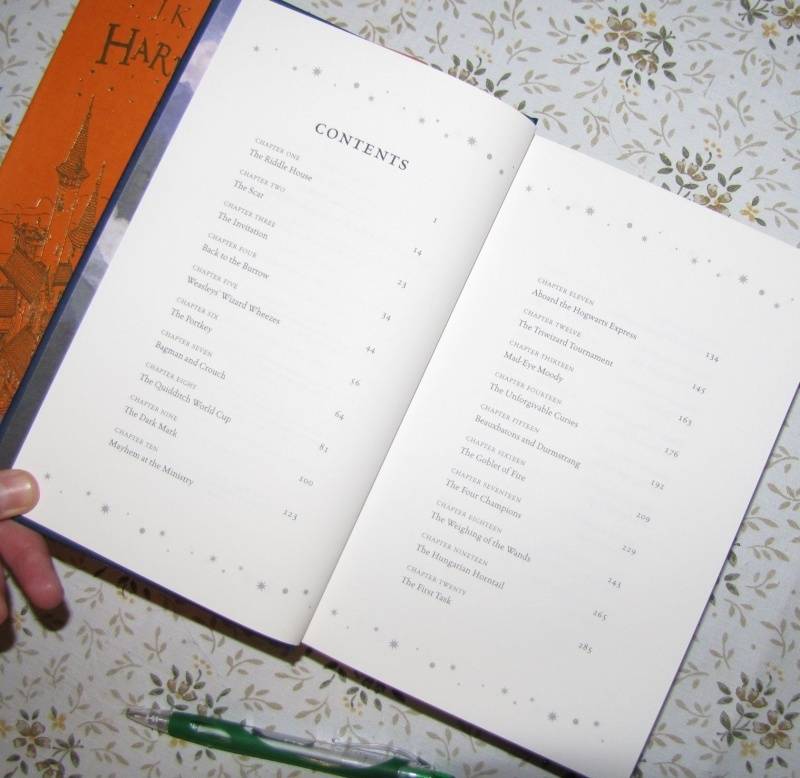 J.K
HAR
CONTENTS
CHAPTER ONE
The Riddle House 1
CHAPTER TWO
The Scar 14
CHAPTER THREE
The Invitation 23
CHAPTER FOUR
Back to the Burrow 34
CHAPTER FIVE
Weasleys' Wizard Wheezes 44
CHAPTER SIX
The Portkey 56
CHAPTER SEVEN
Bagman and Crouch 64
CHAPTER EIGHT
The Quidditch World Cup 81
CHAPTER NINE
The Dark Mark 100
CHAPTER TEN
Mayhem at the Ministry 123
CHAPTER ELEVEN
Aboard the Hogwarts Express 134
CHAPTER TWELVE
The Triwizard Tournament 145
CHAPTER THIRTEEN
Mad-Eye Moody 163
CHAPTER FOURTEEN
The Unforgivable Curses 176
CHAPTER FIFTEEN
Beauxbatons and Durmstrang 192
CHAPTER SIXTEEN
The Goblet of Fire 209
CHAPTER SEVENTEEN
The Four Champions 229
CHAPTER EIGHTEEN
The Weighing of the Wands 243
CHAPTER NINETEEN
The Hungarian Horntail 265
CHAPTER TWENTY
The First Task 285